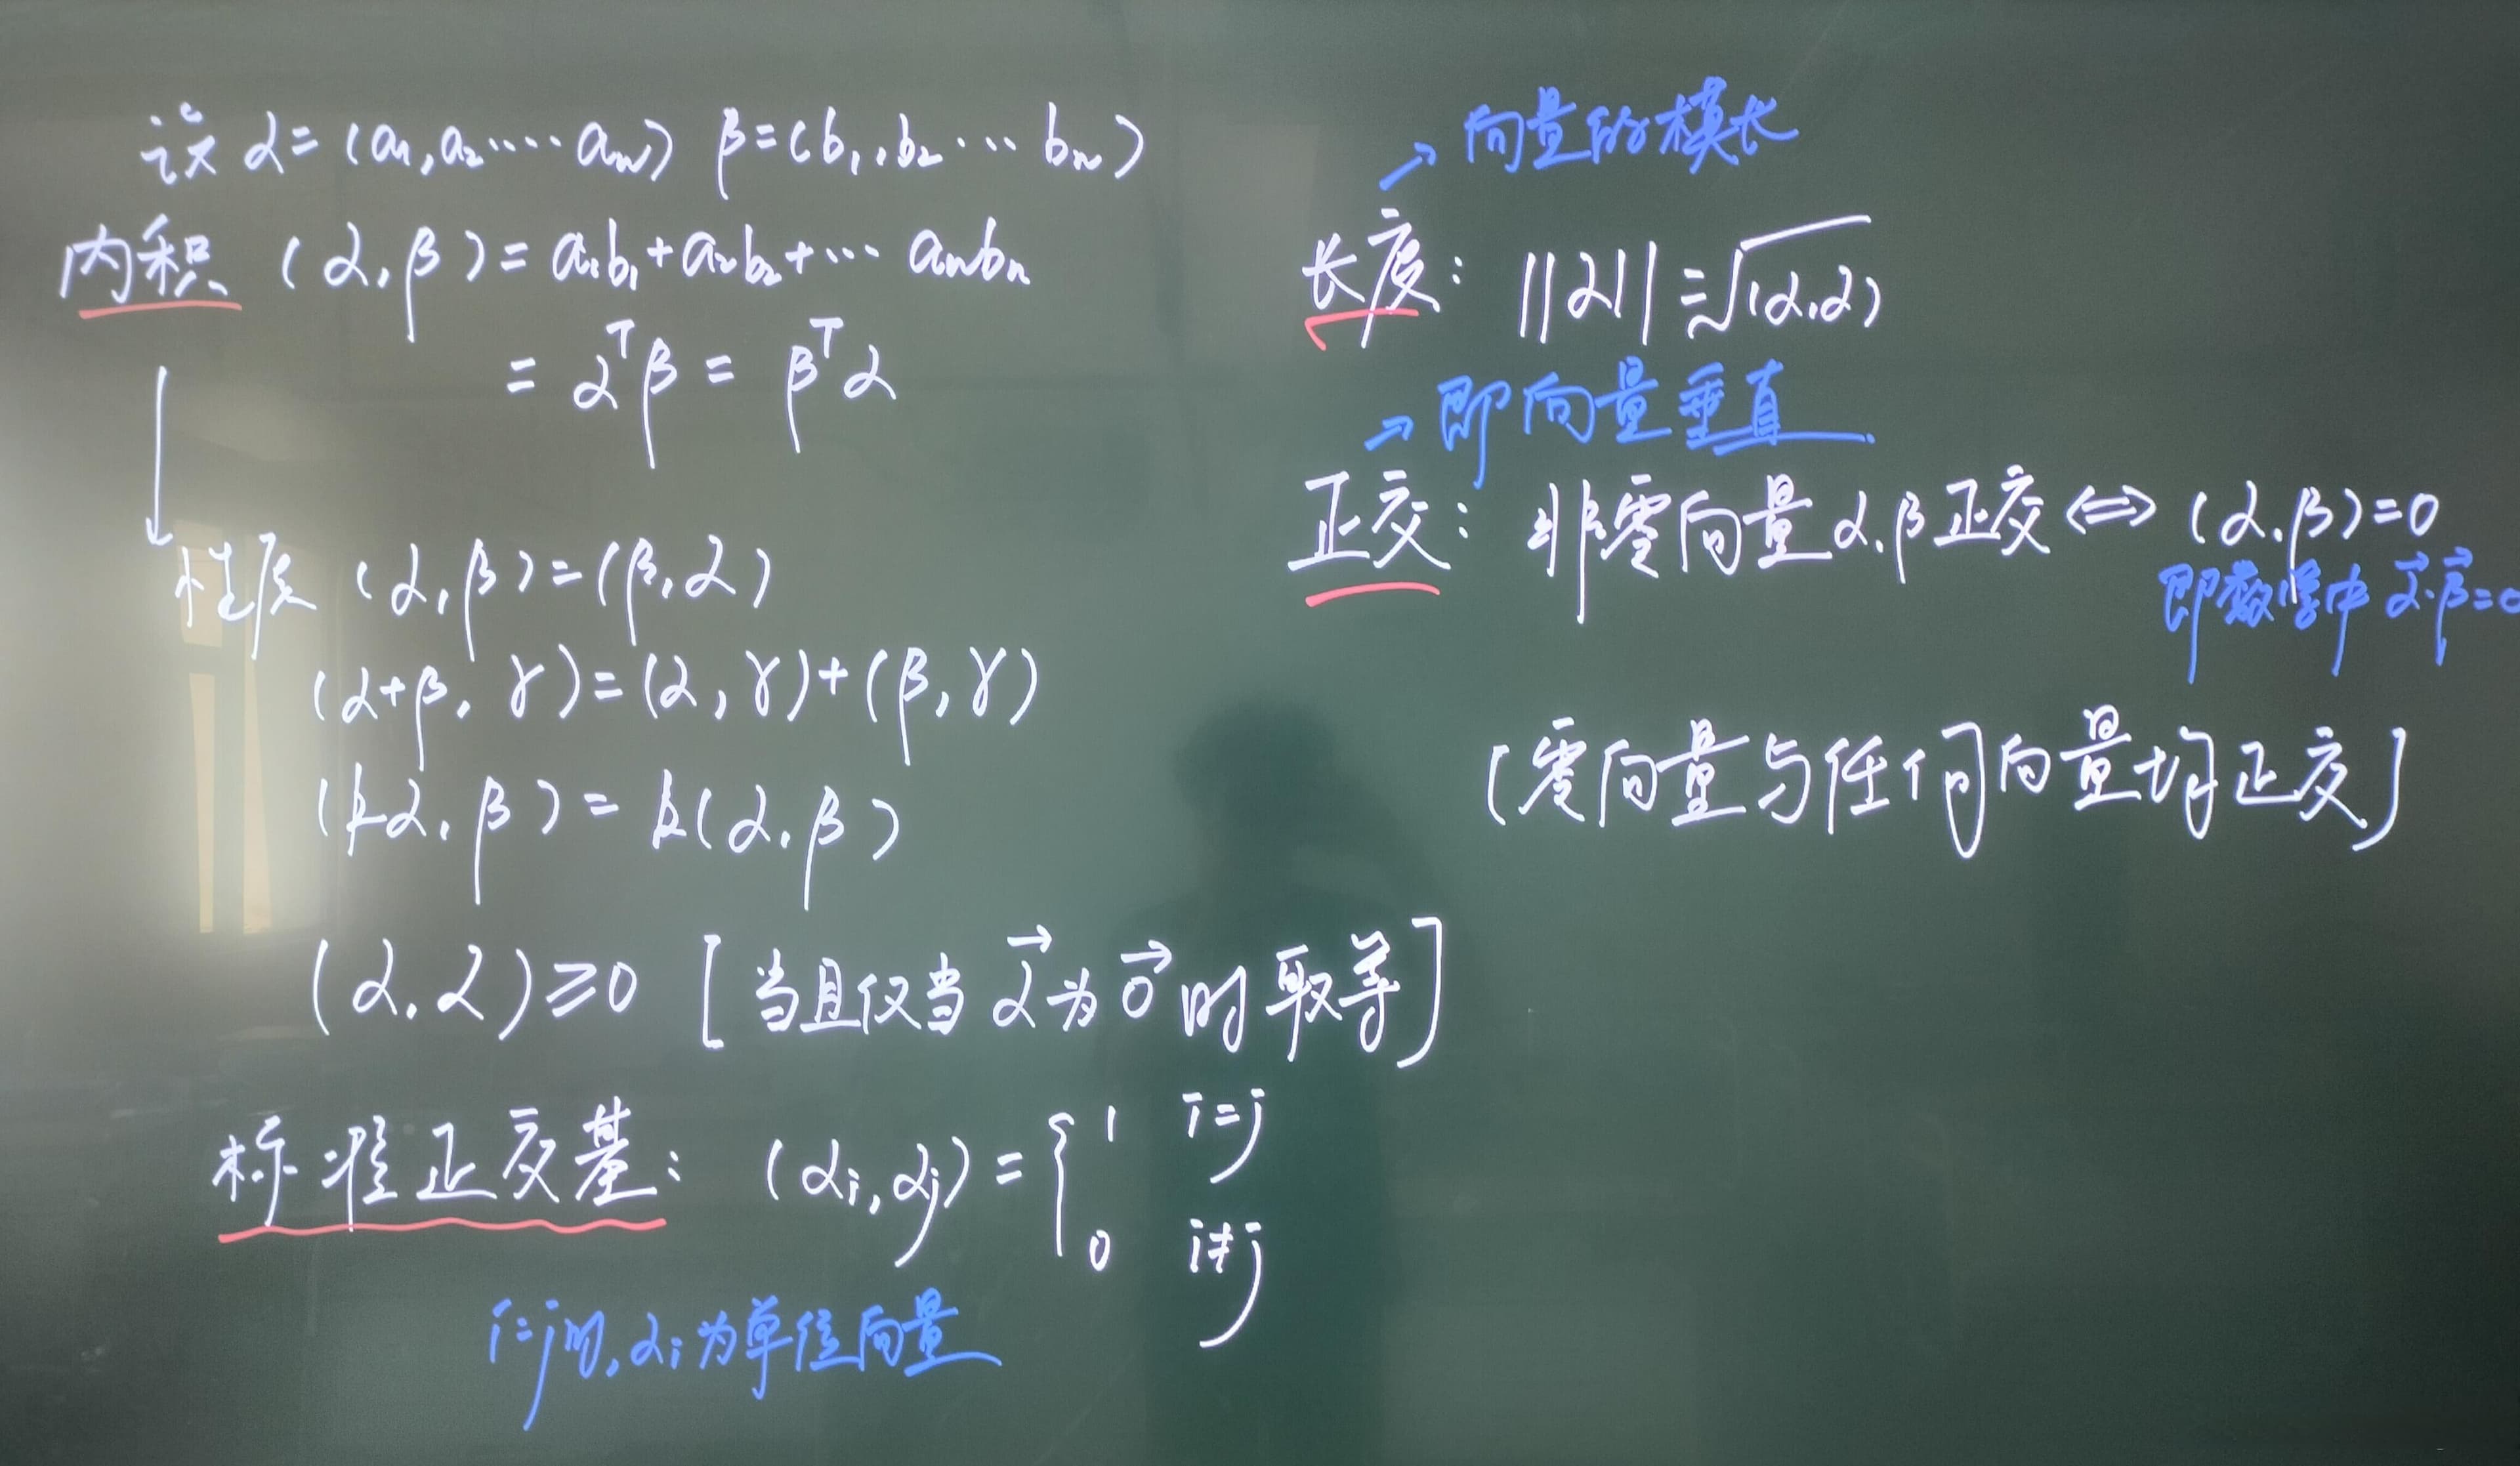 设 α=(a₁,a₂……aₙ) β=(b₁,b₂…bₙ)
内积 (α,β)=a₁b₁+a₂b₂+…aₙbₙ
=αᵀβ=βᵀα
↓
性质 (α,β)=(β,α)
(α+β,γ)=(α,γ)+(β,γ)
(kα,β)=k(α,β)
(α,α)≥0 [当且仅当α⃗为0⃗时取等]
标准正交基: (αᵢ,αⱼ)={1 i=j
0 i≠j
i=j时,αᵢ为单位向量
→向量的模长
长度: ||α||=√(α,α)
→即向量垂直
正交: 非零向量α.β正交⇔(α.β)=0
即数学中α⃗·β⃗=0
[零向量与任何向量均正交]